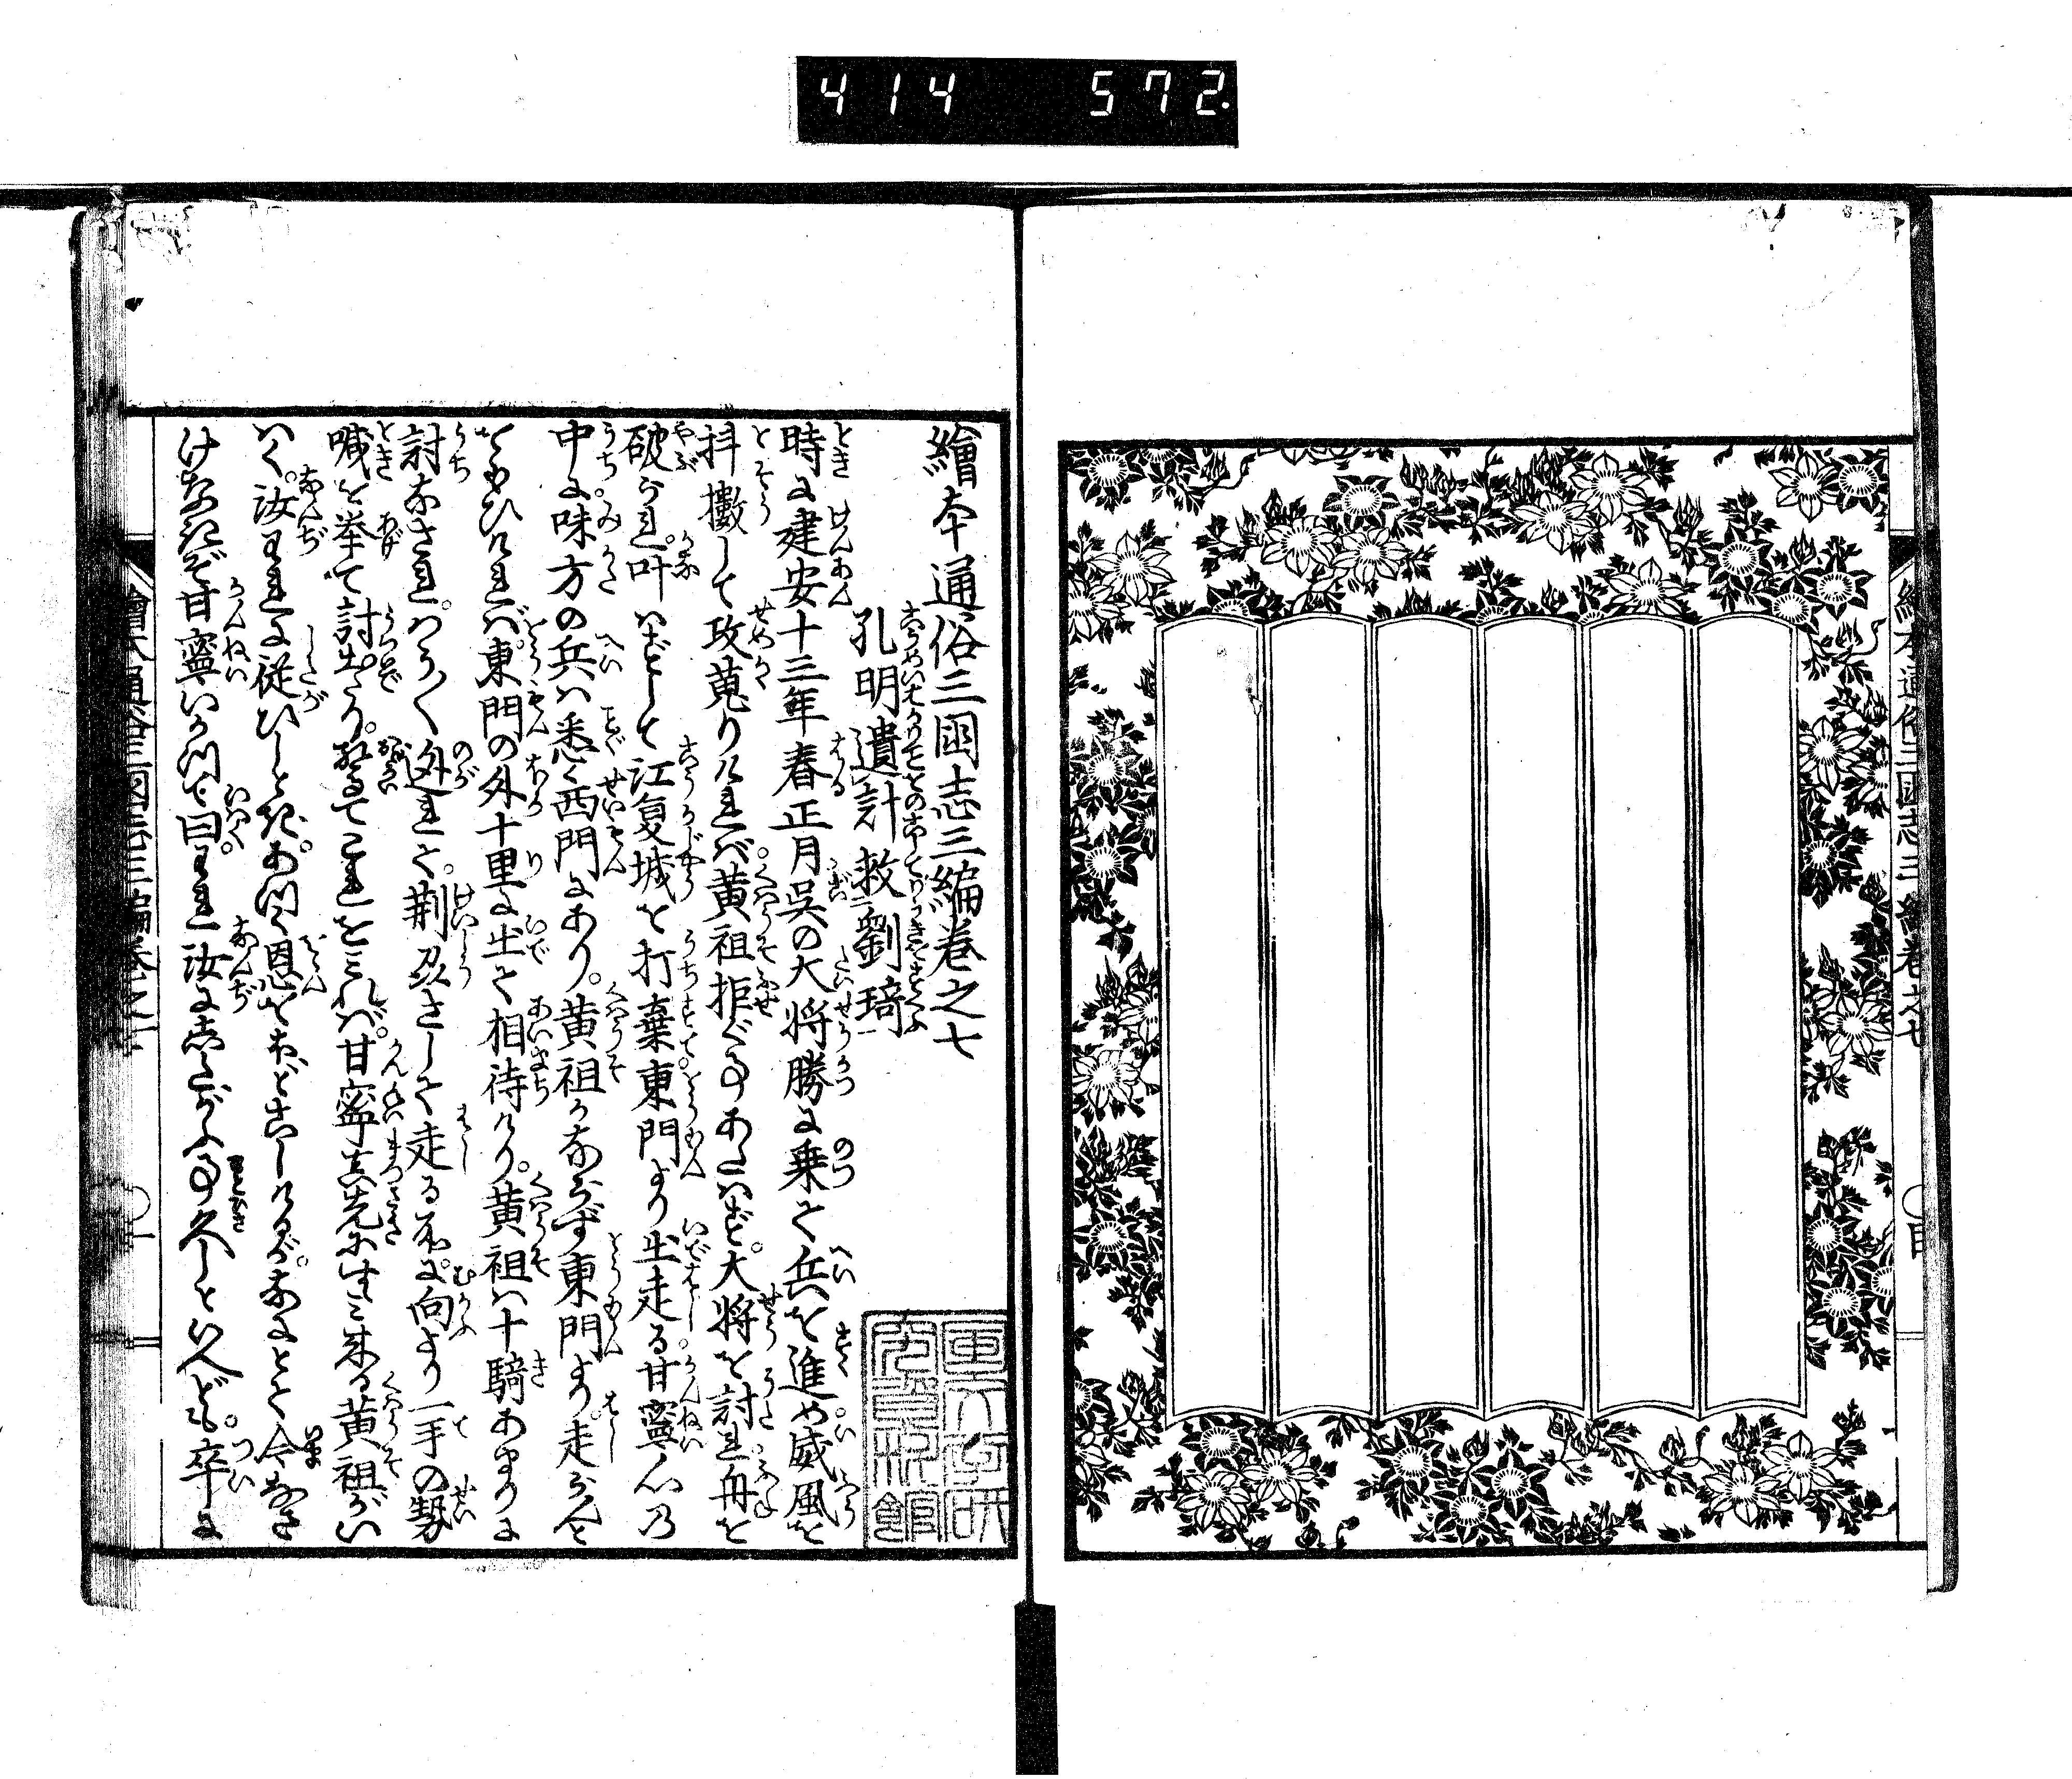 414 572.
繪本通俗三國志三編巻之七
繪本通俗三國志三編巻之七
孔明遺計救劉琦
時に建安十三年春正月呉の大将勝に乗て兵を進め威風を
抖擻して攻蒐りければ黄祖拒ぐ事あたはず大将を討れ舟を
破られ叶はずして江夏城を打棄東門より出走る甘寧心乃
中に味方の兵は悉く西門にあり黄祖かならず東門より走らんと
をもひければ東門の外十里に出て相待けり黄祖は十騎あまりに
討なされはう〱逃れて荆州さして走る所に向より一手の勢
喊を挙て討出たり驚てこれをみれば甘寧真先にすゝみ来る黄祖がい
はく汝われに従ひしときあつく恩をほどこしけるが未にとて今なさ
けなきぞ甘寧いかつて曰われ汝にしたがふ事久しといへども卒に
繪本通俗三國志三編巻之七